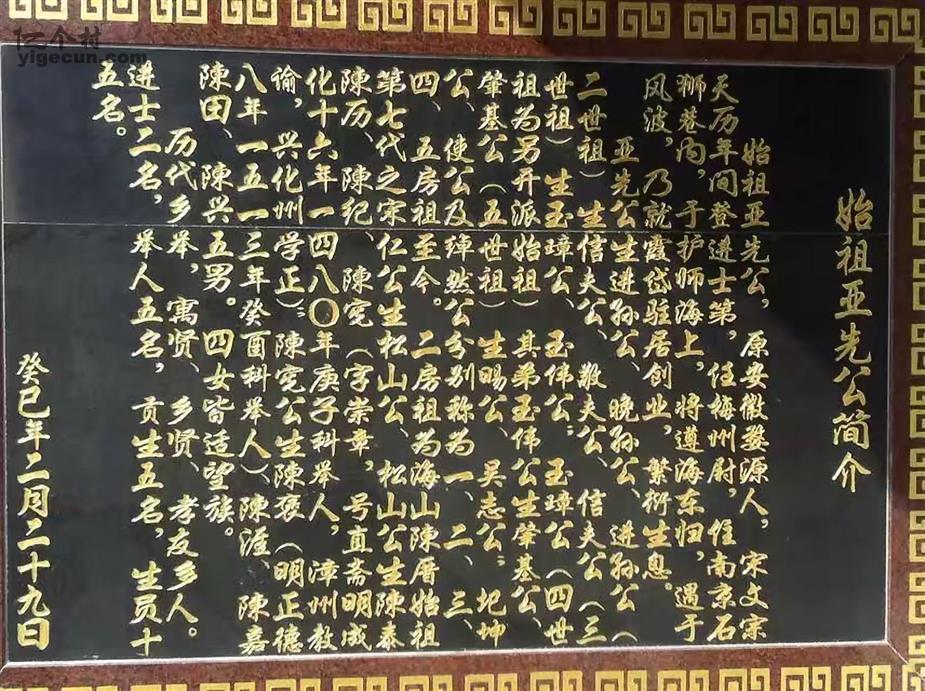 亿个村
yigecun.com
始祖亚先公简介
始祖亚先公,原安徽婺源人,宋文宗
天历年间登进士第,任梅州尉,住南京石
狮巷内,于护师海上,将遵海东归,遇于
风波,乃就霞岱驻居创业,繁衍生息。
亚先公生进孙公、晚孙公、进孙公(
二世祖)生信夫公、敬夫公、信夫公(三
世祖)生玉璋公、玉伟公;玉璋公(四世
祖为另开派始祖)其弟玉伟公生肇基公、
肇基公(五世祖)生暘公、吴志公、圯坤
公、使公及琸然公分别称为一、二、三、
四、五房祖至今。二房祖为海山陳厝始祖
第七代之宋仁公生松山公、松山公生陳泰
陳历、陳纪、陳宪(字崇章,号直斋明成
化十六年一四八〇年庚子科举人,漳州教
谕,兴化州学正);陳宪公生陳褒(明正德
八年一五一三年癸酉科举人)陳涯、陳嘉
陳田、陳兴五男。四女皆适望族。
历代乡举,寓贤、乡贤、孝友乡人。
进士二名,举人五名,贡生五名,生员十
五名。
癸巳年二月二十九日